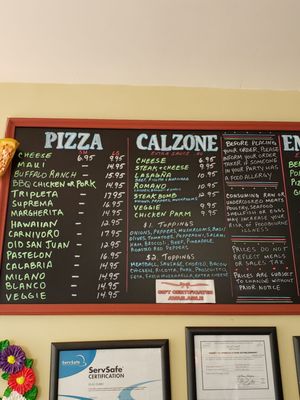 PIZZA
SM LG
CHEESE 6.95 9.95
MAUI — 14.95
BUFFALO RANCH — 15.95
BBQ CHICKEN OR PORK — 14.95
TRIPLETA — 17.95
SUPREMA — 16.95
MARGHERITA — 14.95
HAWAIIAN — 12.95
CARNIVORO — 17.95
OLD SAN JUAN — 12.95
PASTELON — 16.95
CALABRIA — 14.95
MILANO — 14.95
BLANCO — 14.95
VEGGIE — 14.95
CALZONE
EXTRA SAUCE
CHEESE 6.95
STEAK & CHEESE 9.95
LASAGNA 10.95
ROMANO 10.95
STEAK BOMB 12.95
VEGGIE 9.95
CHICKEN PARM 9.95
$1 TOPPINGS
ONIONS, PEPPERS, MUSHROOMS, BASIL
OLIVES, TOMATOES, PEPPERONI, SALAMI,
HAM, BROCCOLI, BEEF, PINEAPPLE,
ROASTED RED PEPPERS
$2 TOPPINGS
MEATBALL, SAUSAGE, CHORIZO, BACON
CHICKEN, RICOTTA, PORK, PROSCIUTTO,
FETA, FRIED MOZZARELLA, EXTRA CHEESE
GIFT CERTIFICATES
AVAILABLE
BEFORE PLACING
YOUR ORDER, PLEASE
INFORM YOUR ORDER
TAKER IF SOMEONE
IN YOUR PARTY HAS
A FOOD ALLERGY.
CONSUMING RAW OR
UNDERCOOKED MEATS
POULTRY, SEAFOOD
SHELLFISH OR EGGS
MAY INCREASE YOUR
RISK OF FOODBORNE
ILLNESS
PRICES DO NOT
REFLECT MEALS
OR SALES TAX.
PRICES ARE SUBJECT
TO CHANGE WITHOUT
PRIOR NOTICE
ServSafe
ServSafe
CERTIFICATION